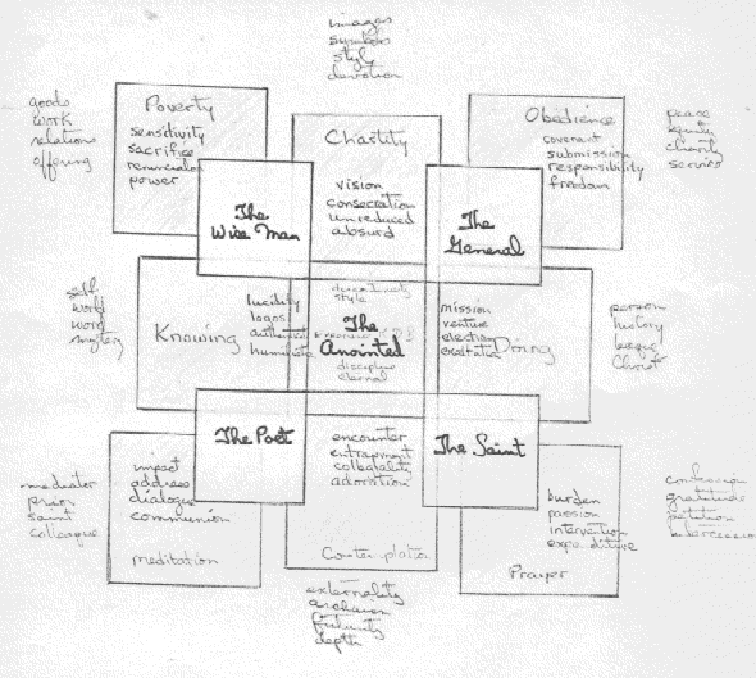 images
symbols
style
devotion
goods
work
relations
offering
Poverty
sensitivity
sacrifice
power
The
Wise Man
Chastity
vision
consecration
unreduced
absurd
Obedience
covenant
submission
responsibility
freedom
The
General
peace
equity
charity
service
self
world
word
mystery
Knowing
lucidity
logos
humiliate
style
The
Anointed
discipline
eternal
mission
venture
election
Doing
person
history
league
Christ
The Poet
impact
address
dialogue
communion
meditation
mediator
prior
saint
colleague
encounter
collegiality
adoration
Contemplation
The Saint
burden
passion
intervention
expenditure
Prayer
confession
gratitude
petition
intercession
externality
futurity
depth